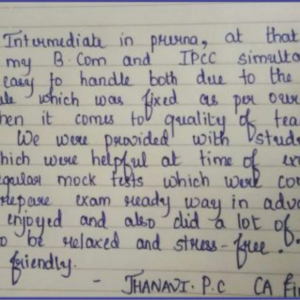 Intermediate in prerna, at that
my B.Com and IPCC simulta
easy to handle both due to the
which was fixed as per our
hen it comes to quality of tea
We were provided with stud
which were helpful at time of ex
egular mock tests which were con
repare exam ready way in adv
enjoyed and also did a lot of
o be relaxed and stress-free.
friendly.
- JHANAVI. P. C CA Fi